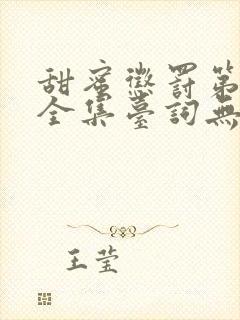 甜蜜懲罰第
全集臺詞無
王莹